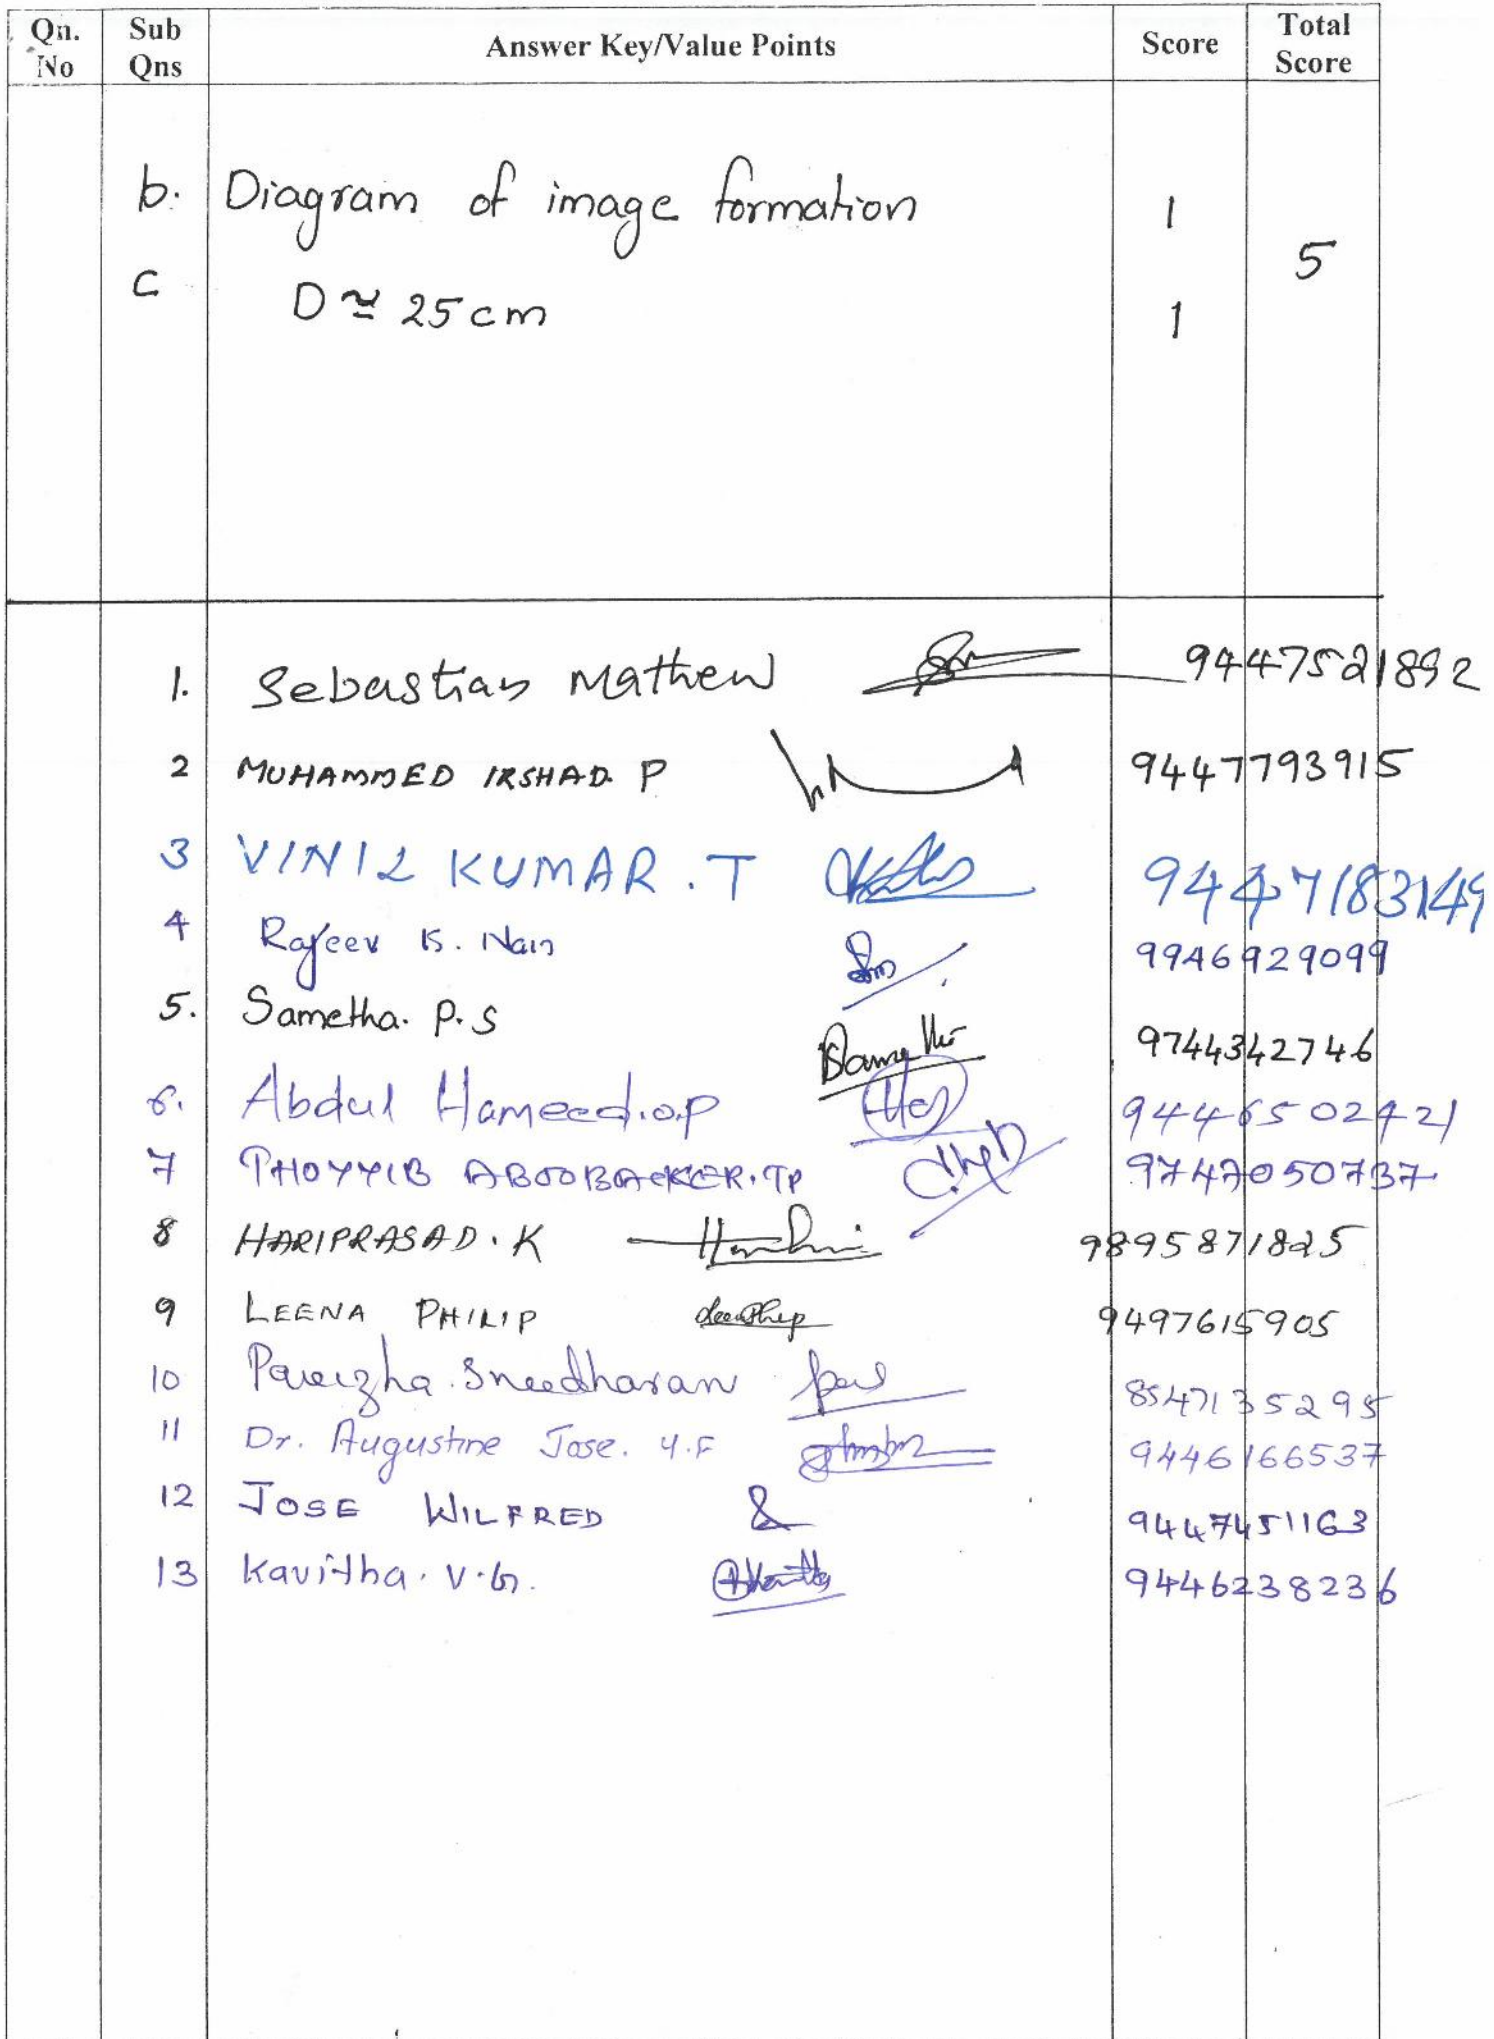 Qn. No Sub Qns Answer Key/Value Points Score Total Score
b. Diagram of image formation 1
5
c D ≃ 25 cm 1
1. Sebastian Mathew 9447521892
2 MUHAMMED IRSHAD. P 9447793915
3 VINIL KUMAR. T 9447183149
4 Rajeev K. Nair 9946929099
5. Sametha. P. S 9744342746
6. Abdul Hameed.O.P 9446502421
7 THOYYIB ABOOBACKER. TP 9747050737
8 HARIPRASAD. K 9895871825
9 LEENA PHILIP 9497615905
10 8547135295
11 Dr. Augustine Jose. 9446166537
12 JOSE WILFRED 9447451163
13 Kavitha. V. G. 9446238236